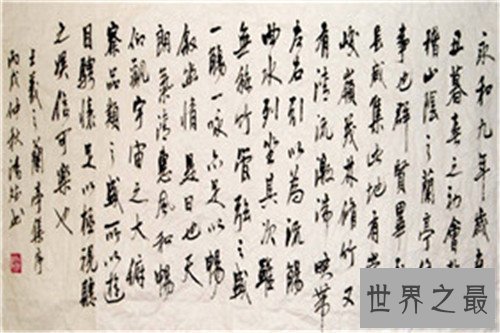 永和九年歲在
丑暮春之初會於
稽山陰之蘭亭修
事也群賢畢至
長咸集此地有崇
峻嶺茂林脩竹又
有清流激湍映帶
左右引以為流觴
曲水列坐其次雖
無絲竹管弦之盛
一觴一詠亦足以暢
敘幽情是日也天
朗氣清惠風和暢
仰觀宇宙之大俯
察品類之盛所以遊
目騁懷足以極視聽
之娛信可樂也
王羲之蘭亭集序
丙戌仲秋清書
世界之最